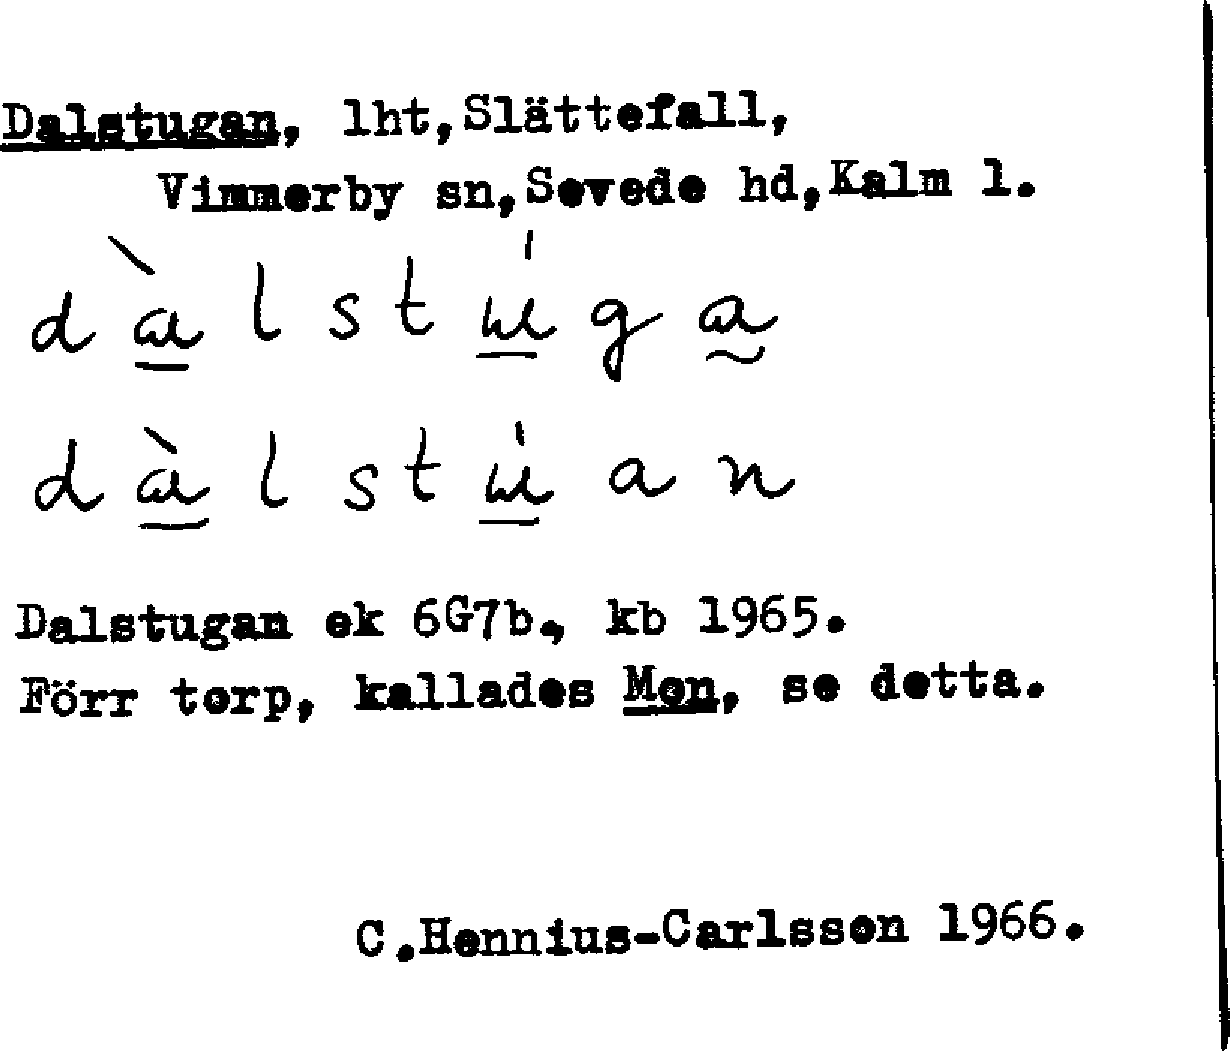 Dalstugan, lht, Slättefall,
Vimmerby sn, Sevede hd, Kalm l.
dàlstúga
dàlstúan
Dalstugan ek 6G7b., kb 1965.
Förr torp, kallades Mon, se detta.
C.Hennius-Carlsson 1966.